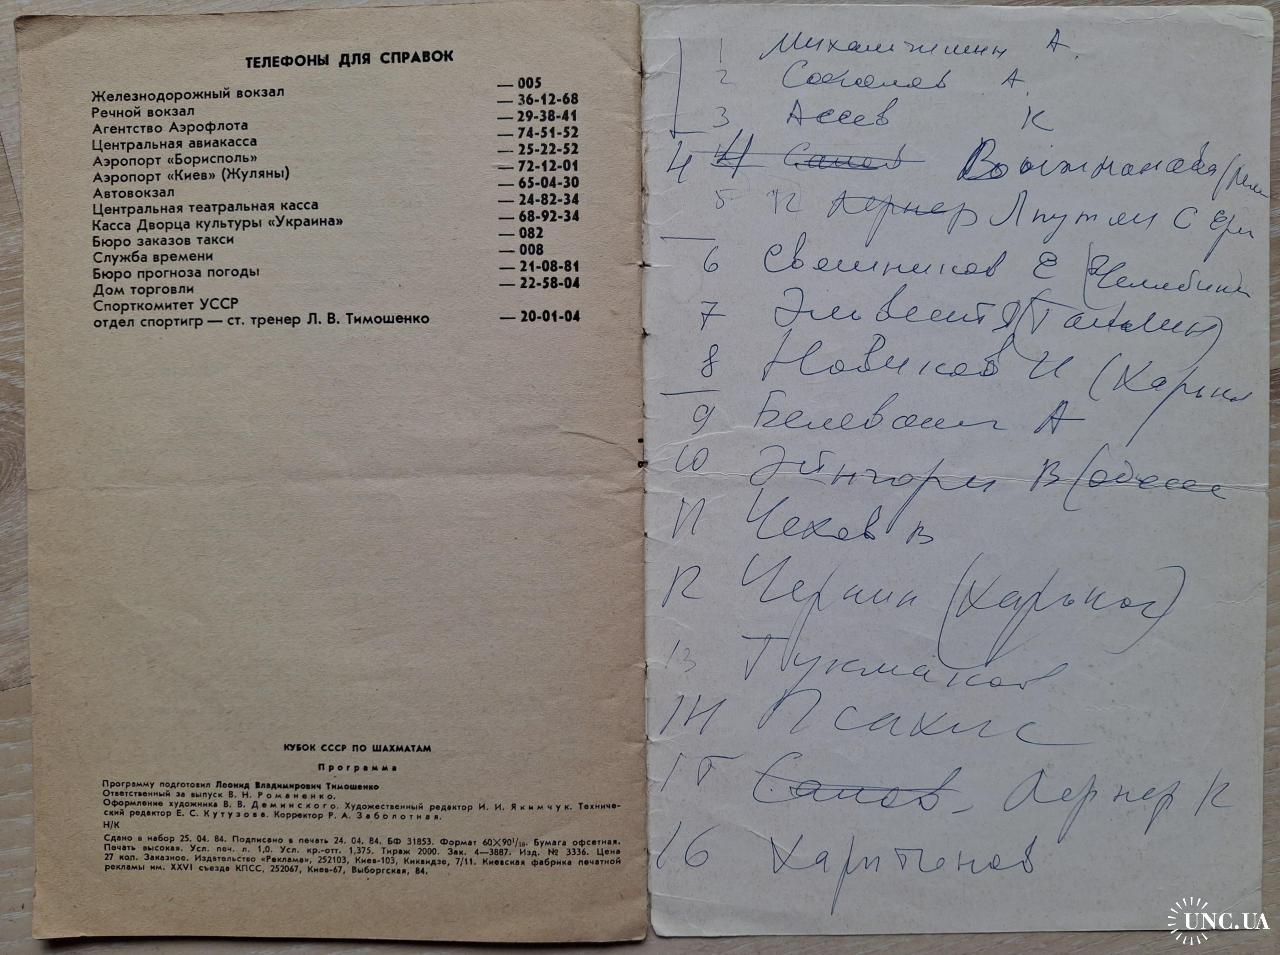 ТЕЛЕФОНЫ ДЛЯ СПРАВОК
Железнодорожный вокзал — 005
Речной вокзал — 36-12-68
Агентство Аэрофлота — 29-38-41
Центральная авиакасса — 74-51-52
Аэропорт «Борисполь» — 25-22-52
Аэропорт «Киев» (Жуляны) — 72-12-01
Автовокзал — 65-04-30
Центральная театральная касса — 24-82-34
Касса Дворца культуры «Украина» — 68-92-34
Бюро заказов такси — 082
Служба времени — 008
Бюро прогноза погоды — 21-08-81
Дом торговли — 22-58-04
Спорткомитет УССР
отдел спортигр — ст. тренер Л. В. Тимошенко — 20-01-04
КУБОК СССР ПО ШАХМАТАМ
Программа
Программу подготовил Леонид Владимирович Тимошенко
Ответственный за выпуск В. Н. Романенко.
Оформление художника В. В. Деминского. Художественный редактор И. И. Якимчук. Техниче-
ский редактор Е. С. Кутузова. Корректор Р. А. Заболотная.
Н/К
Сдано в набор 25. 04. 84. Подписано в печать 24. 04. 84. БФ 31853. Формат 60×90 1/16. Бумага офсетная.
Печать высокая. Усл. печ. л. 1,0. Усл. кр.-отт. 1,375. Тираж 2000. Зак. 4—3887. Изд. № 3336. Цена
27 коп. Заказное. Издательство «Реклама», 252103, Киев-103, Киквидзе, 7/11. Киевская фабрика печатной
рекламы им. XXVI съезда КПСС, 252067, Киев-67, Выборгская, 84.
1 Михальчишин А.
2 Соколов А.
3 Асеев К
4 4 Санов
5 К Лернер Лпутян С
6 Свешников Е
7 Эльвест Я (Таллин)
8 Новиков И (Харьк
9 Белявский А
10 Эйнгорн В (Одесса
11 Чехов В
12 Чернин (Харьков)
13 Тукмаков
14 Псахис
15 Санов Лернер К
16 Харитонов
UNC.UA